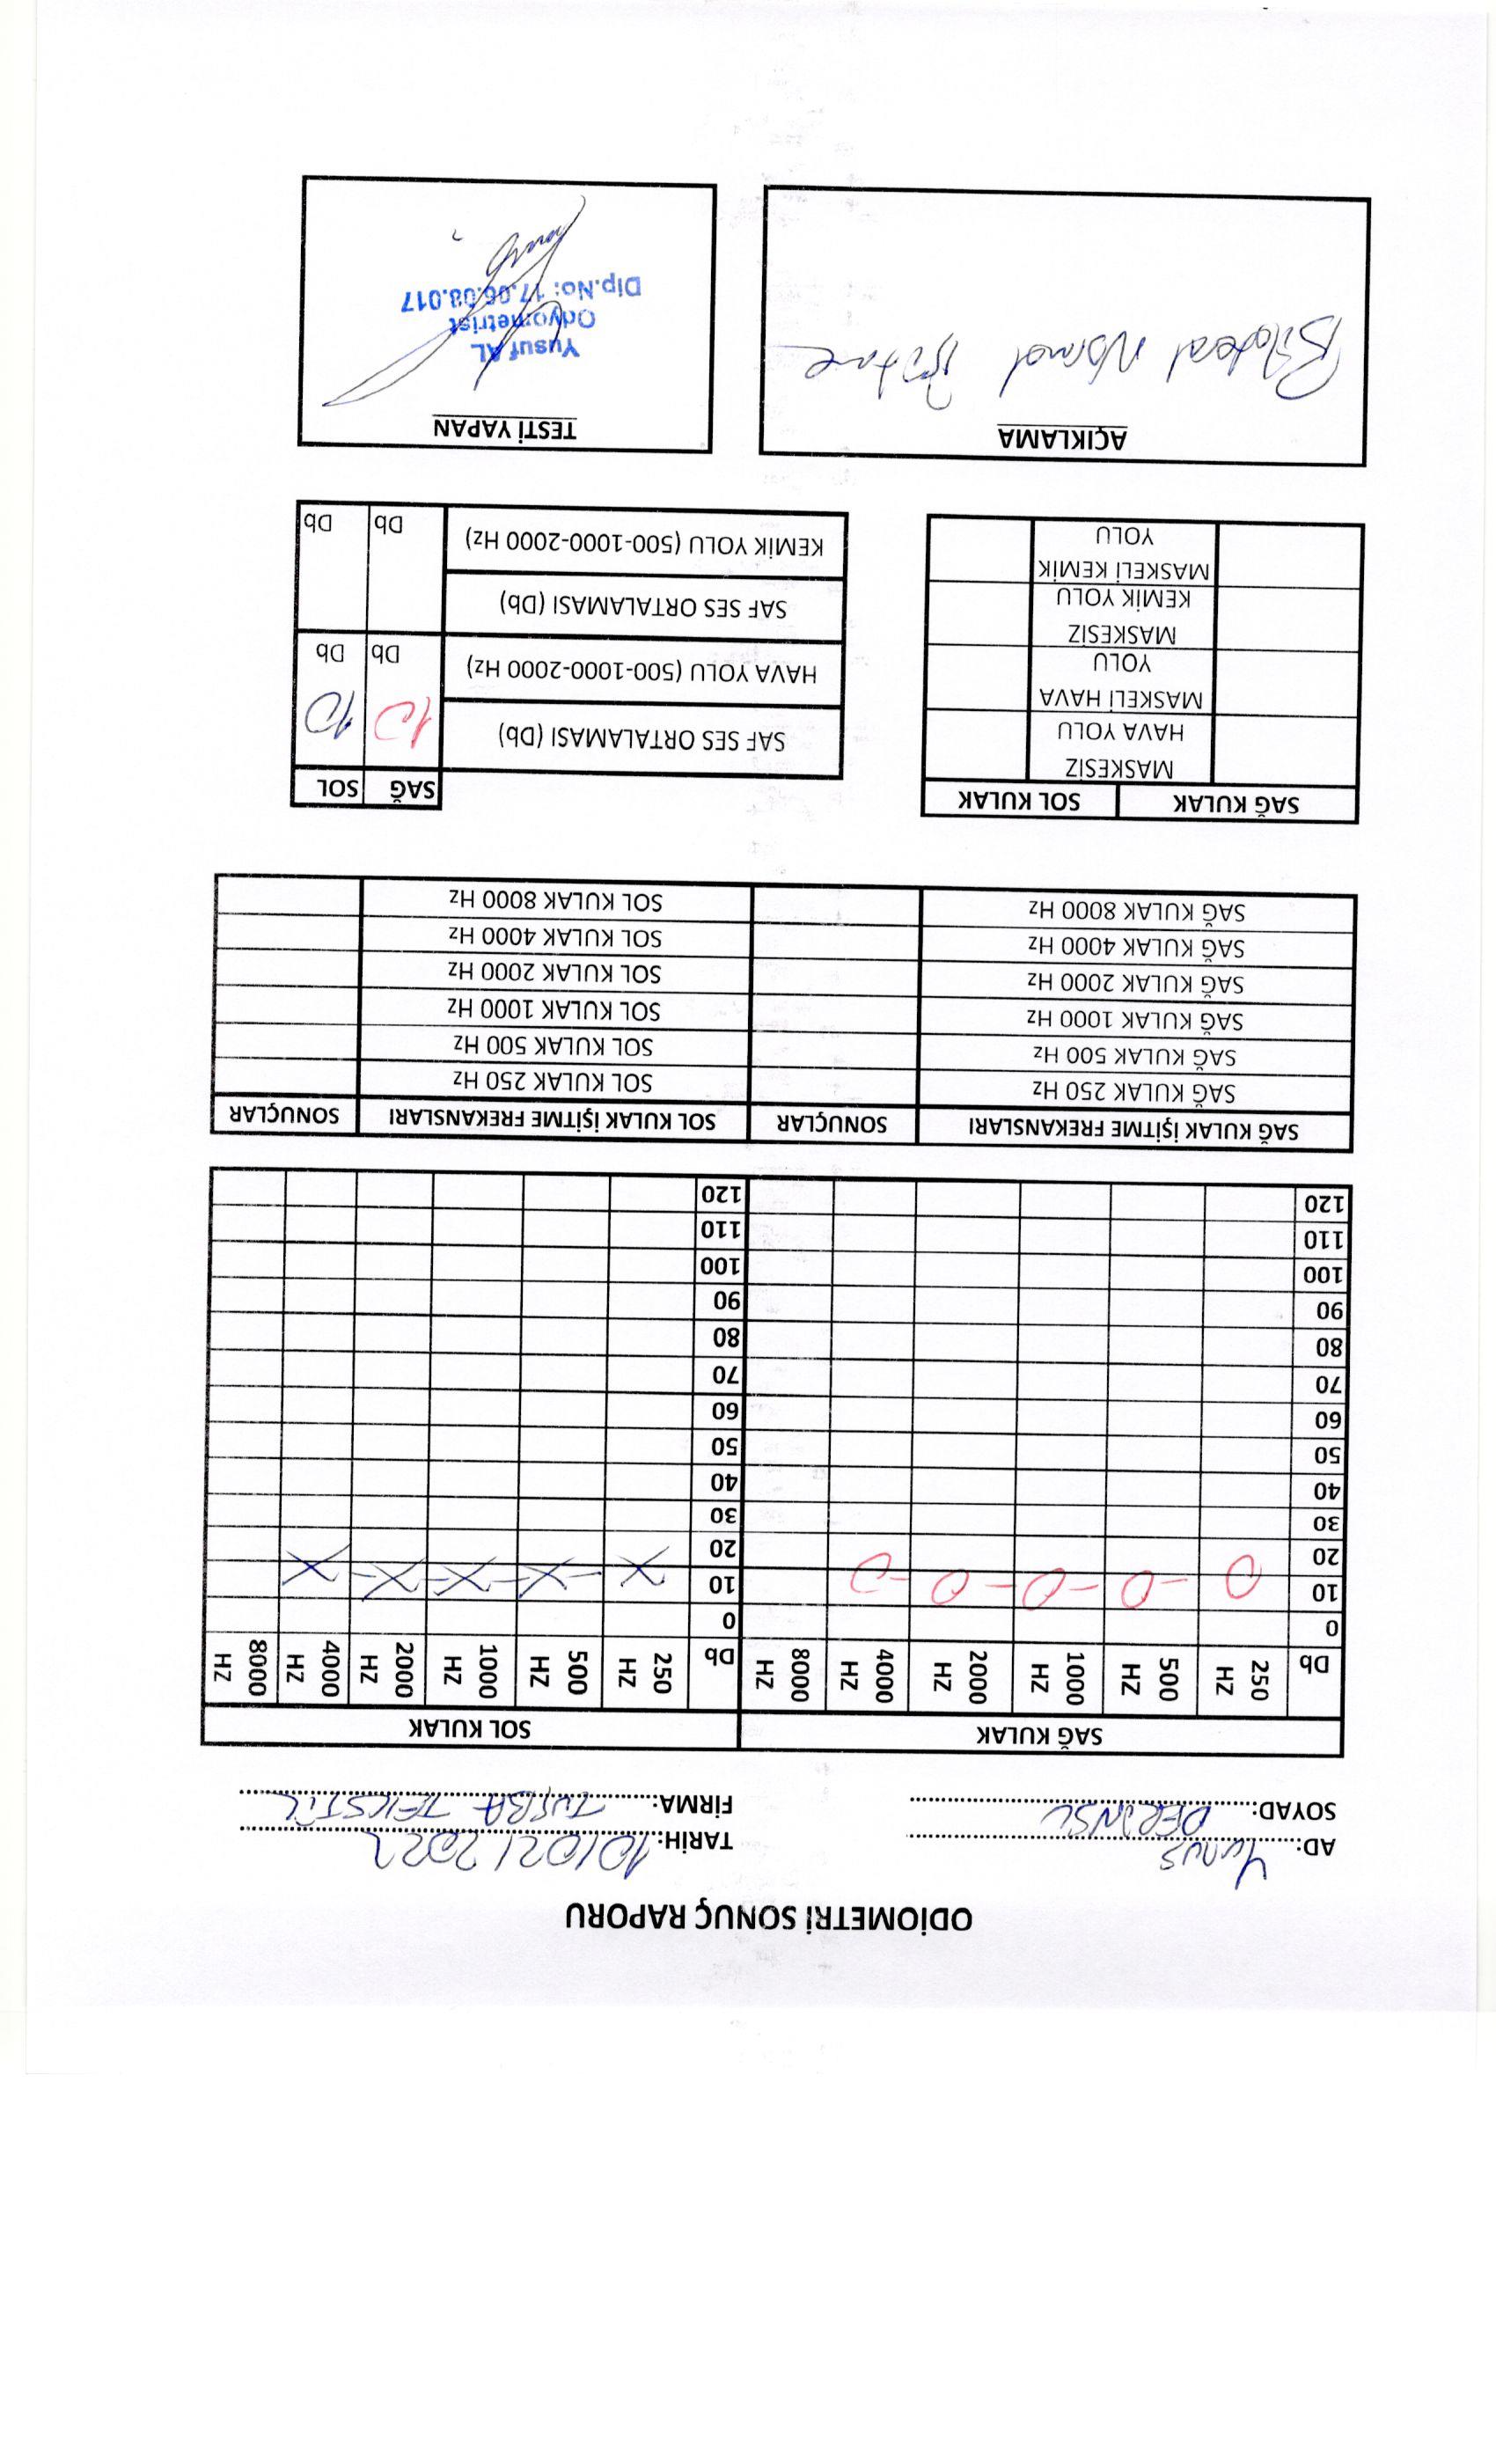 ODİOMETRİ SONUÇ RAPORU
AD: Yunus TARİH: 10/02/2022
SOYAD: FİRMA: TUĞBA TEKSTİL
SAĞ KULAK SOL KULAK
Db 250 HZ 500 HZ 1000 HZ 2000 HZ 4000 HZ 8000 HZ Db 250 HZ 500 HZ 1000 HZ 2000 HZ 4000 HZ 8000 HZ
0 0
10 O-O-O-O-O 10 X-X-X-X-X
20 20
30 30
40 40
50 50
60 60
70 70
80 80
90 90
100 100
110 110
120 120
SAĞ KULAK İŞİTME FREKANSLARI SONUÇLAR SOL KULAK İŞİTME FREKANSLARI SONUÇLAR
SAĞ KULAK 250 Hz SOL KULAK 250 Hz
SAĞ KULAK 500 Hz SOL KULAK 500 Hz
SAĞ KULAK 1000 Hz SOL KULAK 1000 Hz
SAĞ KULAK 2000 Hz SOL KULAK 2000 Hz
SAĞ KULAK 4000 Hz SOL KULAK 4000 Hz
SAĞ KULAK 8000 Hz SOL KULAK 8000 Hz
SAĞ KULAK SOL KULAK
MASKESİZ
HAVA YOLU
MASKELİ HAVA
YOLU
MASKESİZ
KEMİK YOLU
MASKELİ KEMİK
YOLU
SAĞ SOL
SAF SES ORTALAMASI (Db) 10 10
HAVA YOLU (500-1000-2000 Hz) Db Db
SAF SES ORTALAMASI (Db)
KEMİK YOLU (500-1000-2000 Hz) Db Db
AÇIKLAMA
Bilateral Normal İşitme
TESTİ YAPAN
Yusuf AL
Odyometrist
Dip.No: 17.06.08.017